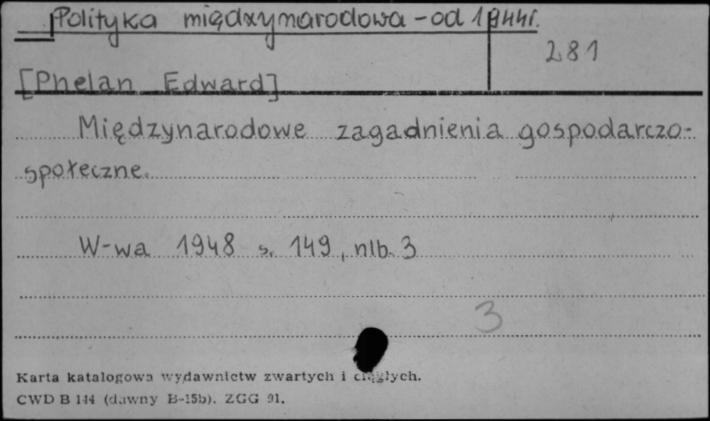 Polityka międzynarodowa - od 1944r.
281
[Phelan Edward]
Międzynarodowe zagadnienia gospodarczo-
społeczne.
W-wa 1948 s. 149, nlb. 3
3
Karta katalogowa wydawnictw zwartych i ciągłych.
CWD B 144 (dawny B-15b). ZGG 91.